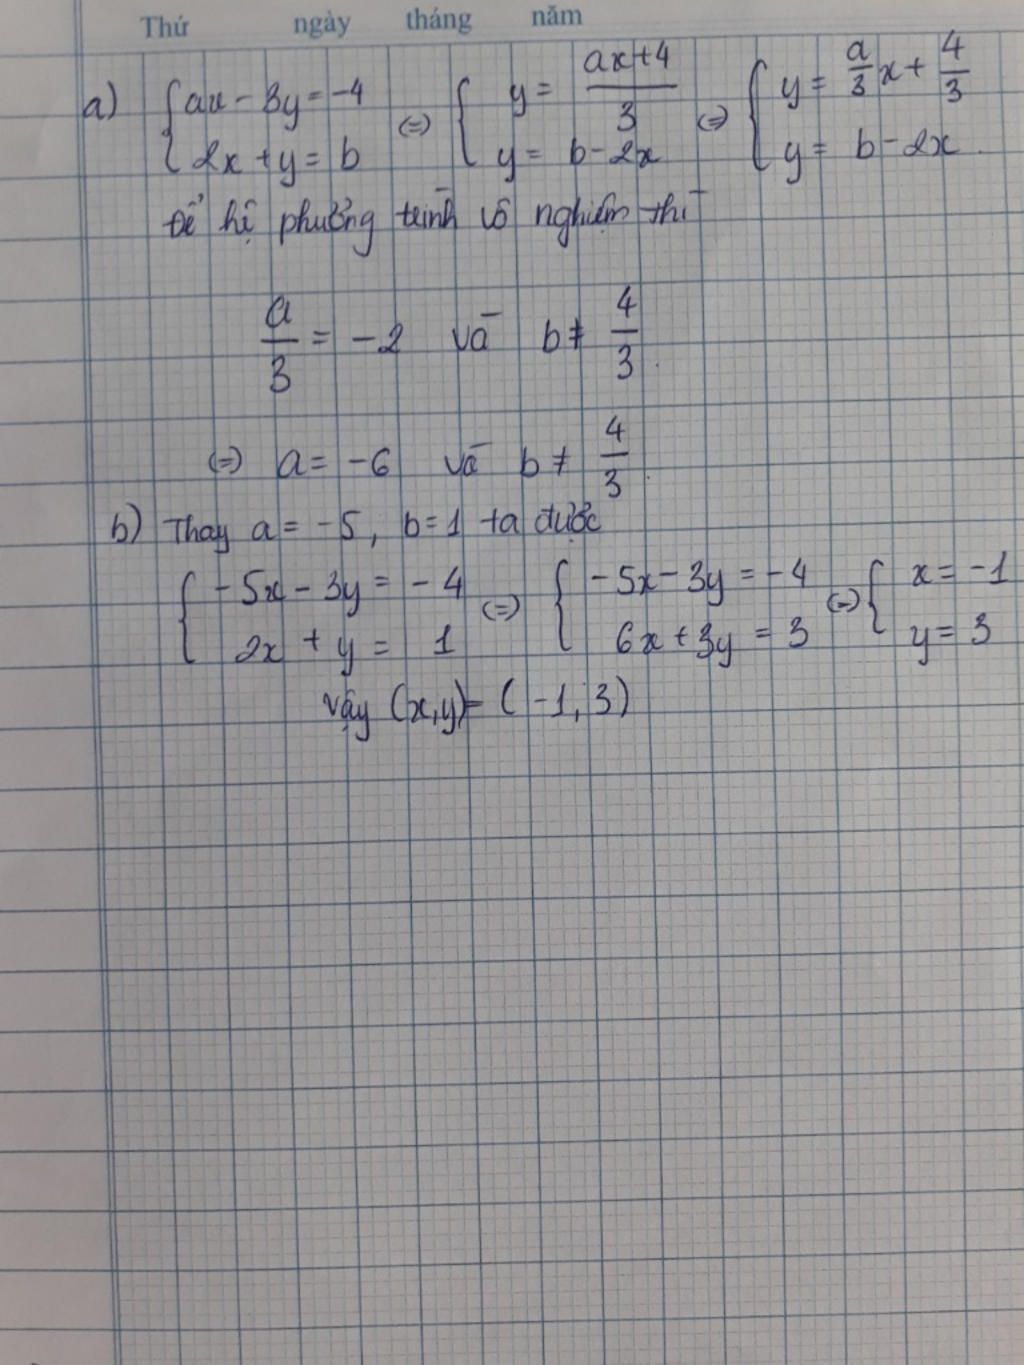 Thứ ngày tháng năm
a) { ax - 3y = -4 (=) { y = (ax+4)/3 (=) { y = a/3 x + 4/3
{ 2x + y = b { y = b - 2x { y = b - 2x.
Để hệ phưởng trình vô nghiệm thì
a/3 = -2 và b ≠ 4/3.
(=) a = -6 và b ≠ 4/3.
b) Thay a = -5, b = 1 ta được
{ -5x - 3y = -4 (=) { -5x - 3y = -4 (=) { x = -1
{ 2x + y = 1 { 6x + 3y = 3 { y = 3
vậy (x,y) = (-1, 3)